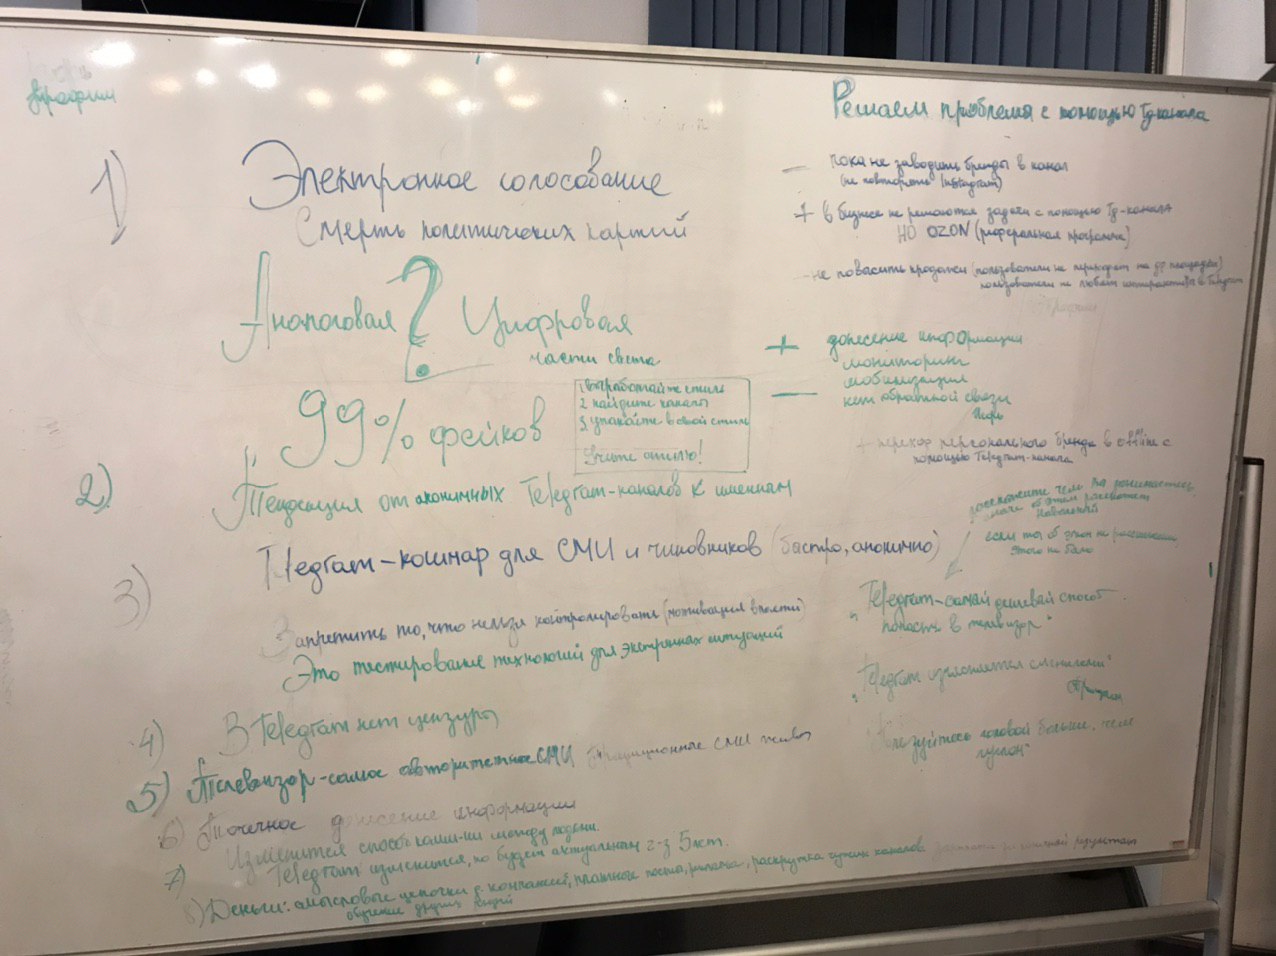 1)
Электронное голосование
Смерть политических партий
Аналоговая ? Цифровая
части света
99% фейков
1. выработайте стиль
2. найдите каналы
3. упакуйте в свой стиль
Учите стилю!
2) Тенденция от анонимных Telegram-каналов к именным
3) Telegram-кошмар для СМИ и чиновников (быстро, анонимно)
Запретить то, что нельзя контролировать (мотивация власти)
Это тестирование технологий для экстренных ситуаций
4) В Telegram нет цензуры
5) Телевизор-самое авторитетное СМИ традиционные СМИ живы
6) Точечное донесение информации
Изменится способ комм-ии между людьми.
7) Telegram изменится, но будет актуальным 2-3 5 лет.
8) Деньги: смысловые цепочки с компанией, платные посты, реклама, раскрутка чужих каналов
обучение других людей
Решаем проблемы с помощью Тg-канала
- пока не заводить бренды в канал
(не повторять Instagram)
+ в бизнесе не решаются задачи с помощью Тg-канала
НО OZON (реферальная программа)
- не повысить продажи (пользователи не переходят на др площадки)
пользователи не любят в Telegram
+ донесение информации
мониторинг
мобилизация
- нет обратной связи
+ персонального бренда в offline с
помощью Telegram-канала
расскажите чем вы занимаетесь,
иначе об этом расскажет
Навальный
если ты об этом не рассказал
этого не было
"Telegram-самый дешевый способ
попасть в телевизор"
"Telegram смыслами"
головой больше, чем